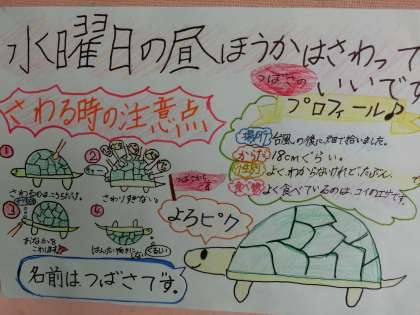 水曜日の昼ほうかはさわって
つばさの
いいです
さわる時の注意点
プロフィール♪
場所 台風の後に畑で拾いました。
からだ 18cmぐらい。
性別 よくわからないけれど、たぶん。
食べ物 よく食べているのは、コイのエサです。
①
さわるのは、こうらだけ。
②
さわりすぎない
③
おなかを
④
はんたい向きにしない
くるしい
よろピク
名前はつばさです。